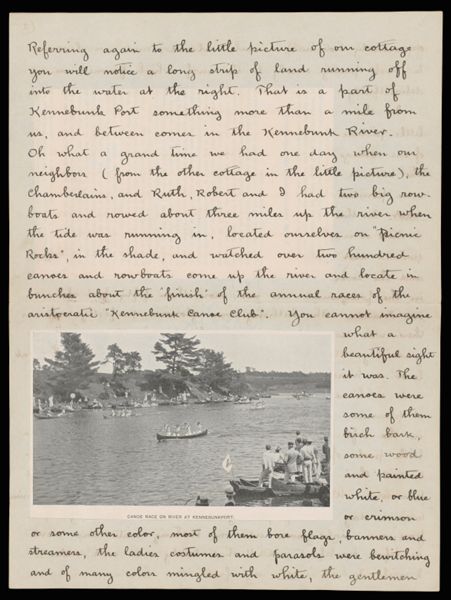 Referring again to the little picture of our cottage
you will notice a long strip of land running off
into the water at the right. That is a part of
Kennebunk Port something more than a mile from
us, and between comes in the Kennebunk River.
Oh what a grand time we had one day when our
neighbors (from the other cottage in the little picture), the
Chamberlains, and Ruth, Robert and I had two big row-
boats and rowed about three miles up the river when
the tide was running in, located ourselves on "Picnic
Rocks", in the shade, and watched over two hundred
canoes and rowboats come up the river and locate in
bunches about the "finish" of the annual races of the
aristocratic "Kennebunk Canoe Club". You cannot imagine
what a
beautiful sight
it was. The
canoes were
some of them
birch bark,
some wood
and painted
white, or blue
or crimson
CANOE RACE ON RIVER AT KENNEBUNKPORT.
or some other color, most of them bore flags, banners and
streamers, the ladies costumes and parasols were bewitching
and of many colors mingled with white, the gentlemen